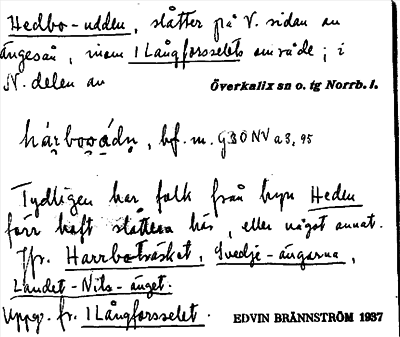 Hedbo-udden, slåtter på V. sidan av
Ängesån, inom 1 Långforsselets område; i
N. delen av Överkalix sn o. tg Norrb. l.
bf. m. GBÖNV a3, 95
Tydligen har folk från byn Heden
förr haft slåttern här, eller något annat.
Jfr. Harrboträsket, Svedje-ängarna,
Landet-Nils-änget.
Uppg. fr. 1 Långforsselet. EDVIN BRÄNNSTRÖM 1937